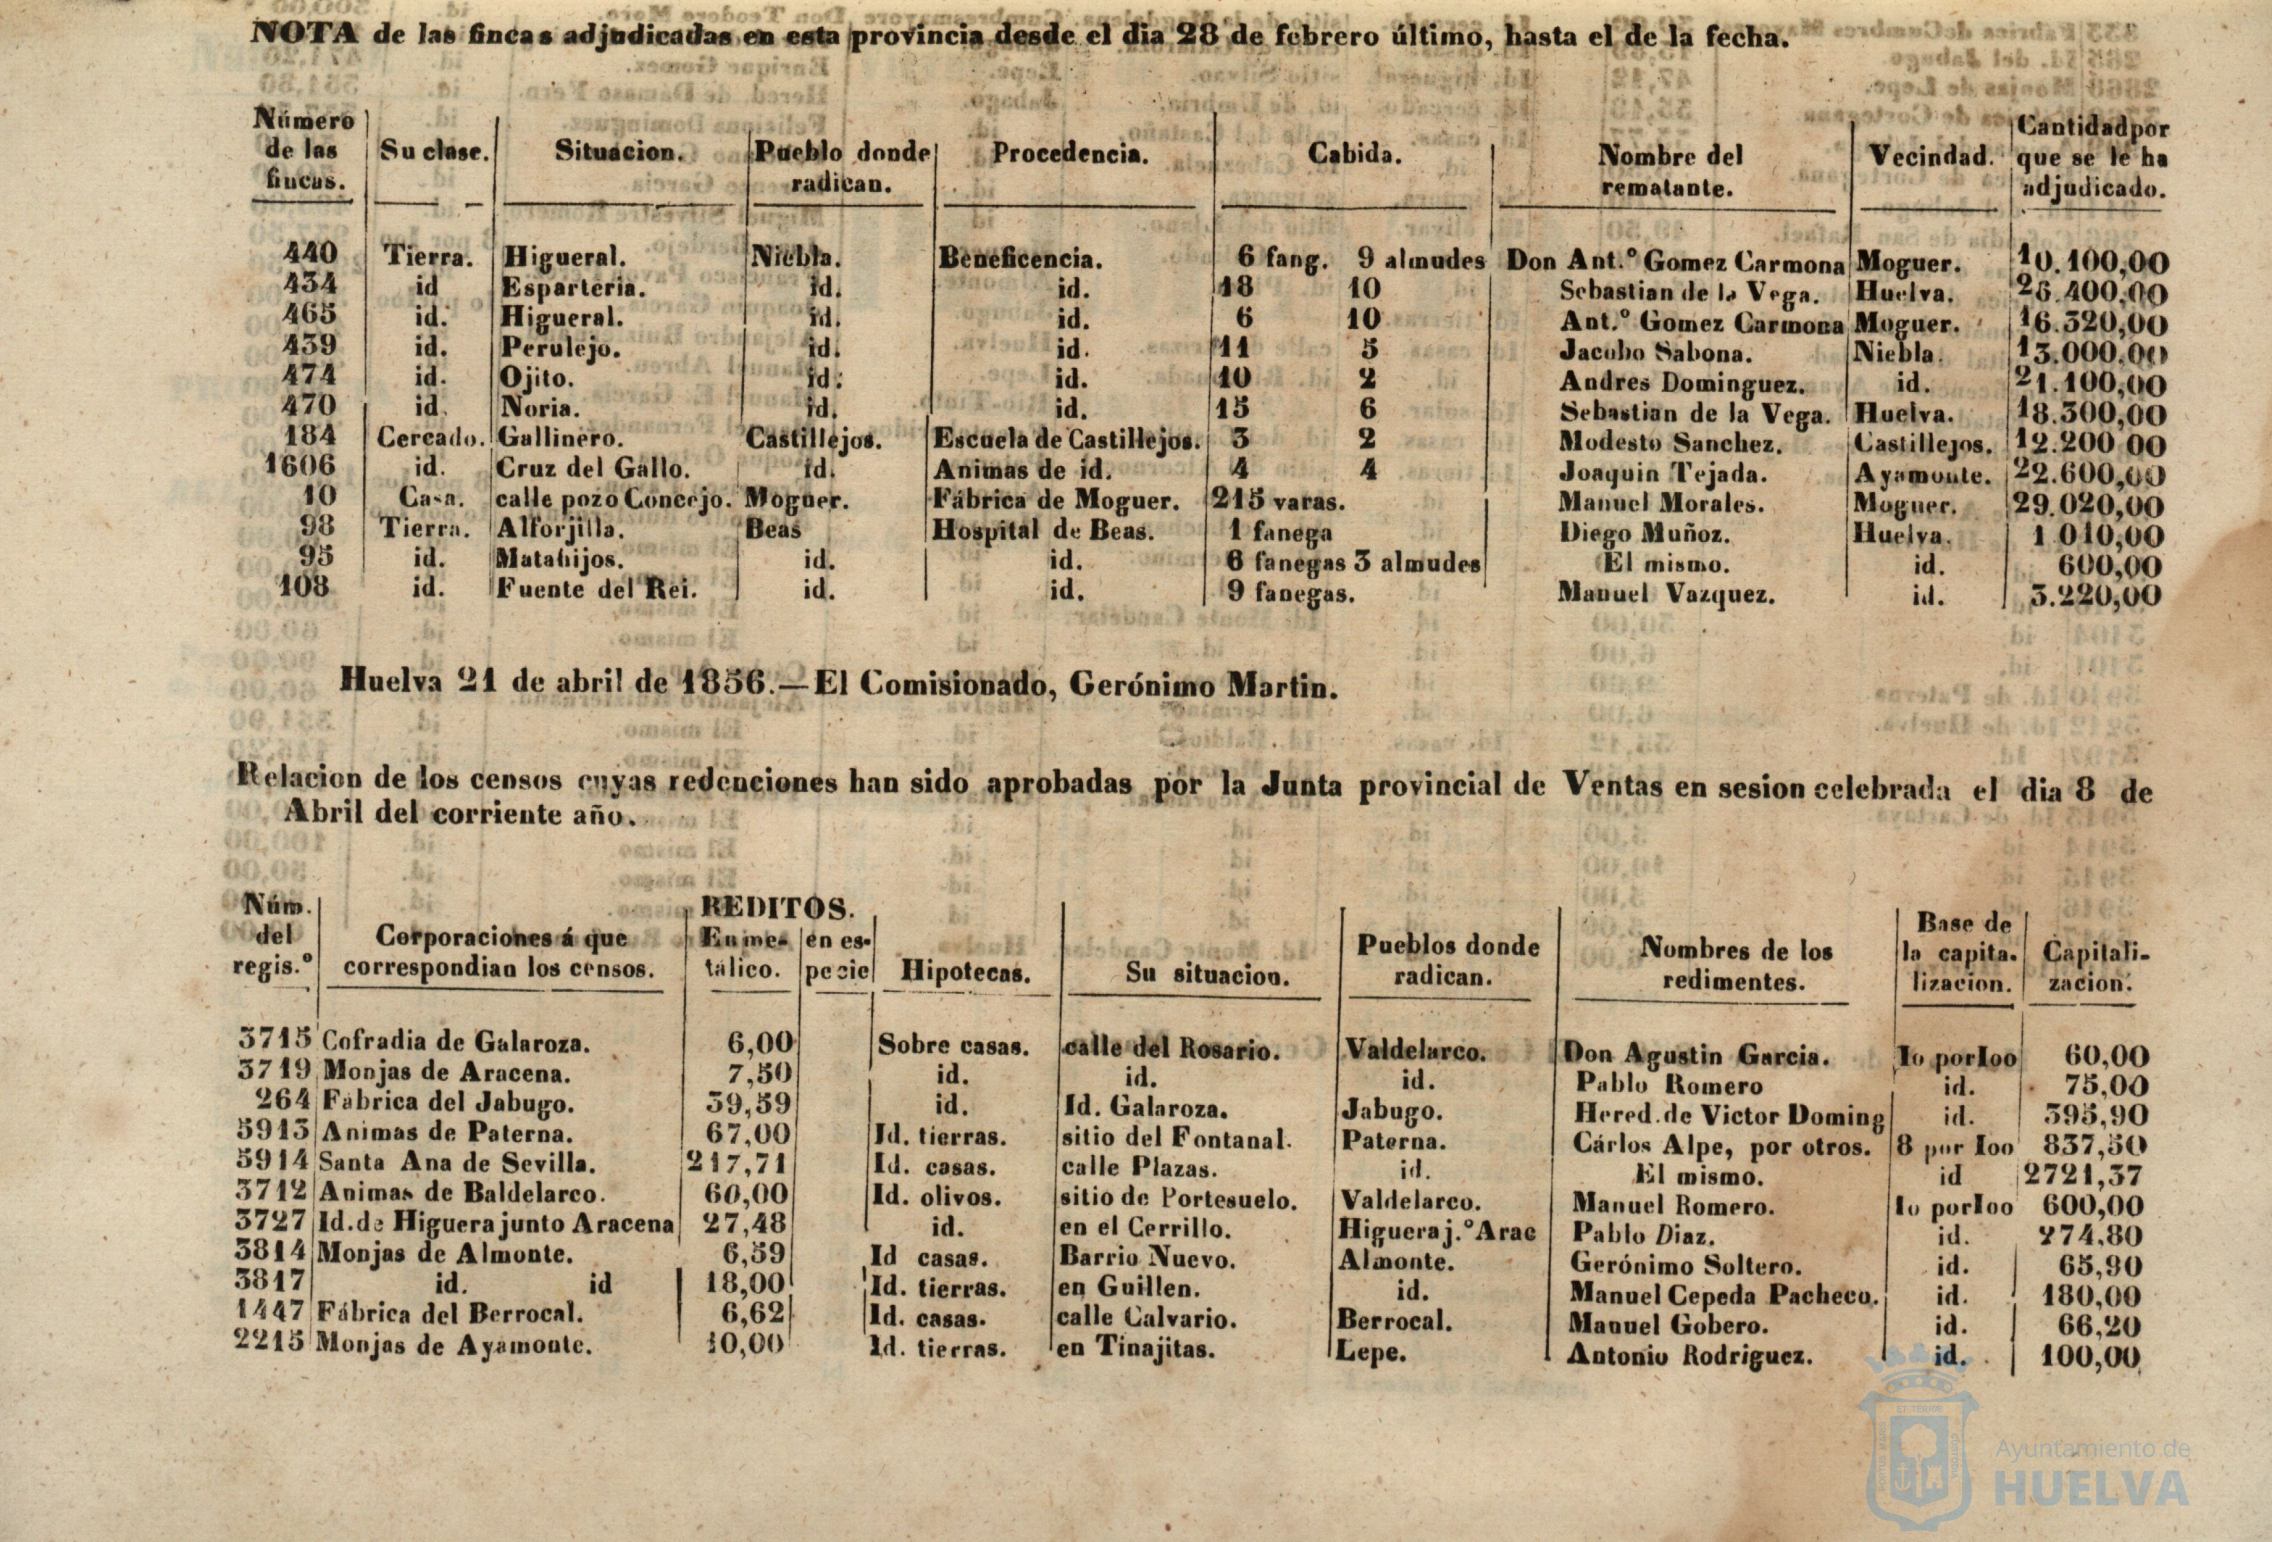 NOTA de las fincas adjudicadas en esta provincia desde el dia 28 de febrero último, hasta el de la fecha.
Número de las fincas. Su clase. Situacion. Pueblo donde radican. Procedencia. Cabida. Nombre del rematante. Vecindad. Cantidad por que se le ha adjudicado.
440 Tierra. Higueral. Niebla. Beneficencia. 6 fang. 9 almudes Don Ant.º Gomez Carmona Moguer. 10.100,00
434 id Esparteria. id. id. 18 10 Sebastian de la Vega. Huelva. 26.400,00
465 id. Higueral. id. id. 6 10 Ant.º Gomez Carmona Moguer. 16.320,00
439 id. Perulejo. id. id. 11 5 Jacobo Sabona. Niebla. 13.000,00
474 id. Ojito. id. id. 10 2 Andres Dominguez. id. 21.100,00
470 id. Noria. id. id. 15 6 Sebastian de la Vega. Huelva. 18.300,00
184 Cercado. Gallinero. Castillejos. Escuela de Castillejos. 3 2 Modesto Sanchez. Castillejos. 12.200 00
1606 id. Cruz del Gallo. id. Animas de id. 4 4 Joaquin Tejada. Ayamonte. 22.600,00
10 Casa. calle pozo Concejo. Moguer. Fábrica de Moguer. 215 varas. Manuel Morales. Moguer. 29.020,00
98 Tierra. Alforjilla. Beas Hospital de Beas. 1 fanega Diego Muñoz. Huelva. 1 010,00
95 id. Matahijos. id. id. 6 fanegas 3 almudes El mismo. id. 600,00
108 id. Fuente del Rei. id. id. 9 fanegas. Manuel Vazquez. id. 3.220,00
Huelva 21 de abril de 1856.—El Comisionado, Gerónimo Martin.
Relacion de los censos cuyas redenciones han sido aprobadas por la Junta provincial de Ventas en sesion celebrada el dia 8 de
Abril del corriente año.
REDITOS.
Núm. del regis.º Corporaciones á que correspondian los censos. En me-tálico. en es-pecie Hipotecas. Su situacion. Pueblos donde radican. Nombres de los redimentes. Base de la capita-lizacion. Capitali-zacion.
3715 Cofradia de Galaroza. 6,00 Sobre casas. calle del Rosario. Valdelarco. Don Agustin Garcia. Io por Ioo 60,00
3719 Monjas de Aracena. 7,50 id. id. id. Pablo Romero id. 75,00
264 Fábrica del Jabugo. 39,59 id. Id. Galaroza. Jabugo. Hered. de Victor Doming id. 395,90
5913 Animas de Paterna. 67,00 Id. tierras. sitio del Fontanal. Paterna. Cárlos Alpe, por otros. 8 por Ioo 837,50
5914 Santa Ana de Sevilla. 217,71 Id. casas. calle Plazas. id. El mismo. id 2721,37
3712 Animas de Baldelarco. 60,00 Id. olivos. sitio de Portesuelo. Valdelarco. Manuel Romero. Io por Ioo 600,00
3727 Id. de Higuera junto Aracena 27,48 id. en el Cerrillo. Higuera j.º Arac Pablo Diaz. id. 274,80
3814 Monjas de Almonte. 6,59 Id casas. Barrio Nuevo. Almonte. Gerónimo Soltero. id. 65,90
3817 id. id 18,00 Id. tierras. en Guillen. id. Manuel Cepeda Pacheco. id. 180,00
1447 Fábrica del Berrocal. 6,62 Id. casas. calle Calvario. Berrocal. Manuel Gobero. id. 66,20
2215 Monjas de Ayamonte. 10,00 Id. tierras. en Tinajitas. Lepe. Antonio Rodriguez. id. 100,00
Ayuntamiento de
HUELVA